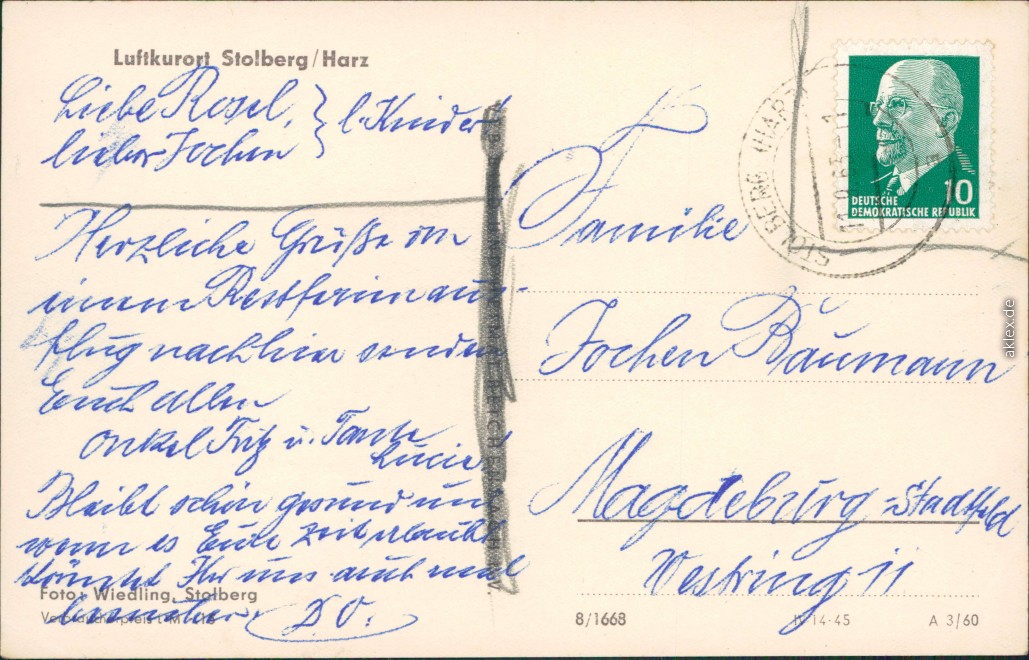 Luftkurort Stolberg/Harz
Liebe Rosel, } l. Kinder
lieber Jochen
Herzliche Grüße von
einem Restferienaus-
flug nach hier senden
Euch allen
Onkel Fritz u. Tante
Lucie.
Bleibt schön gesund und
wenn es Eure Zeit erlaubt
könntet Ihr uns auch mal
besuchen. D.O.
Foto: Wiedling, Stolberg
Verbraucherpreis
8/1668
IV 14-45
A 3/60
Familie
Jochen Baumann
Magdeburg-Stadtfeld
Westring 11
STOLBERG (HARZ)
10
DEUTSCHE
DEMOKRATISCHE REPUBLIK
aklex.de